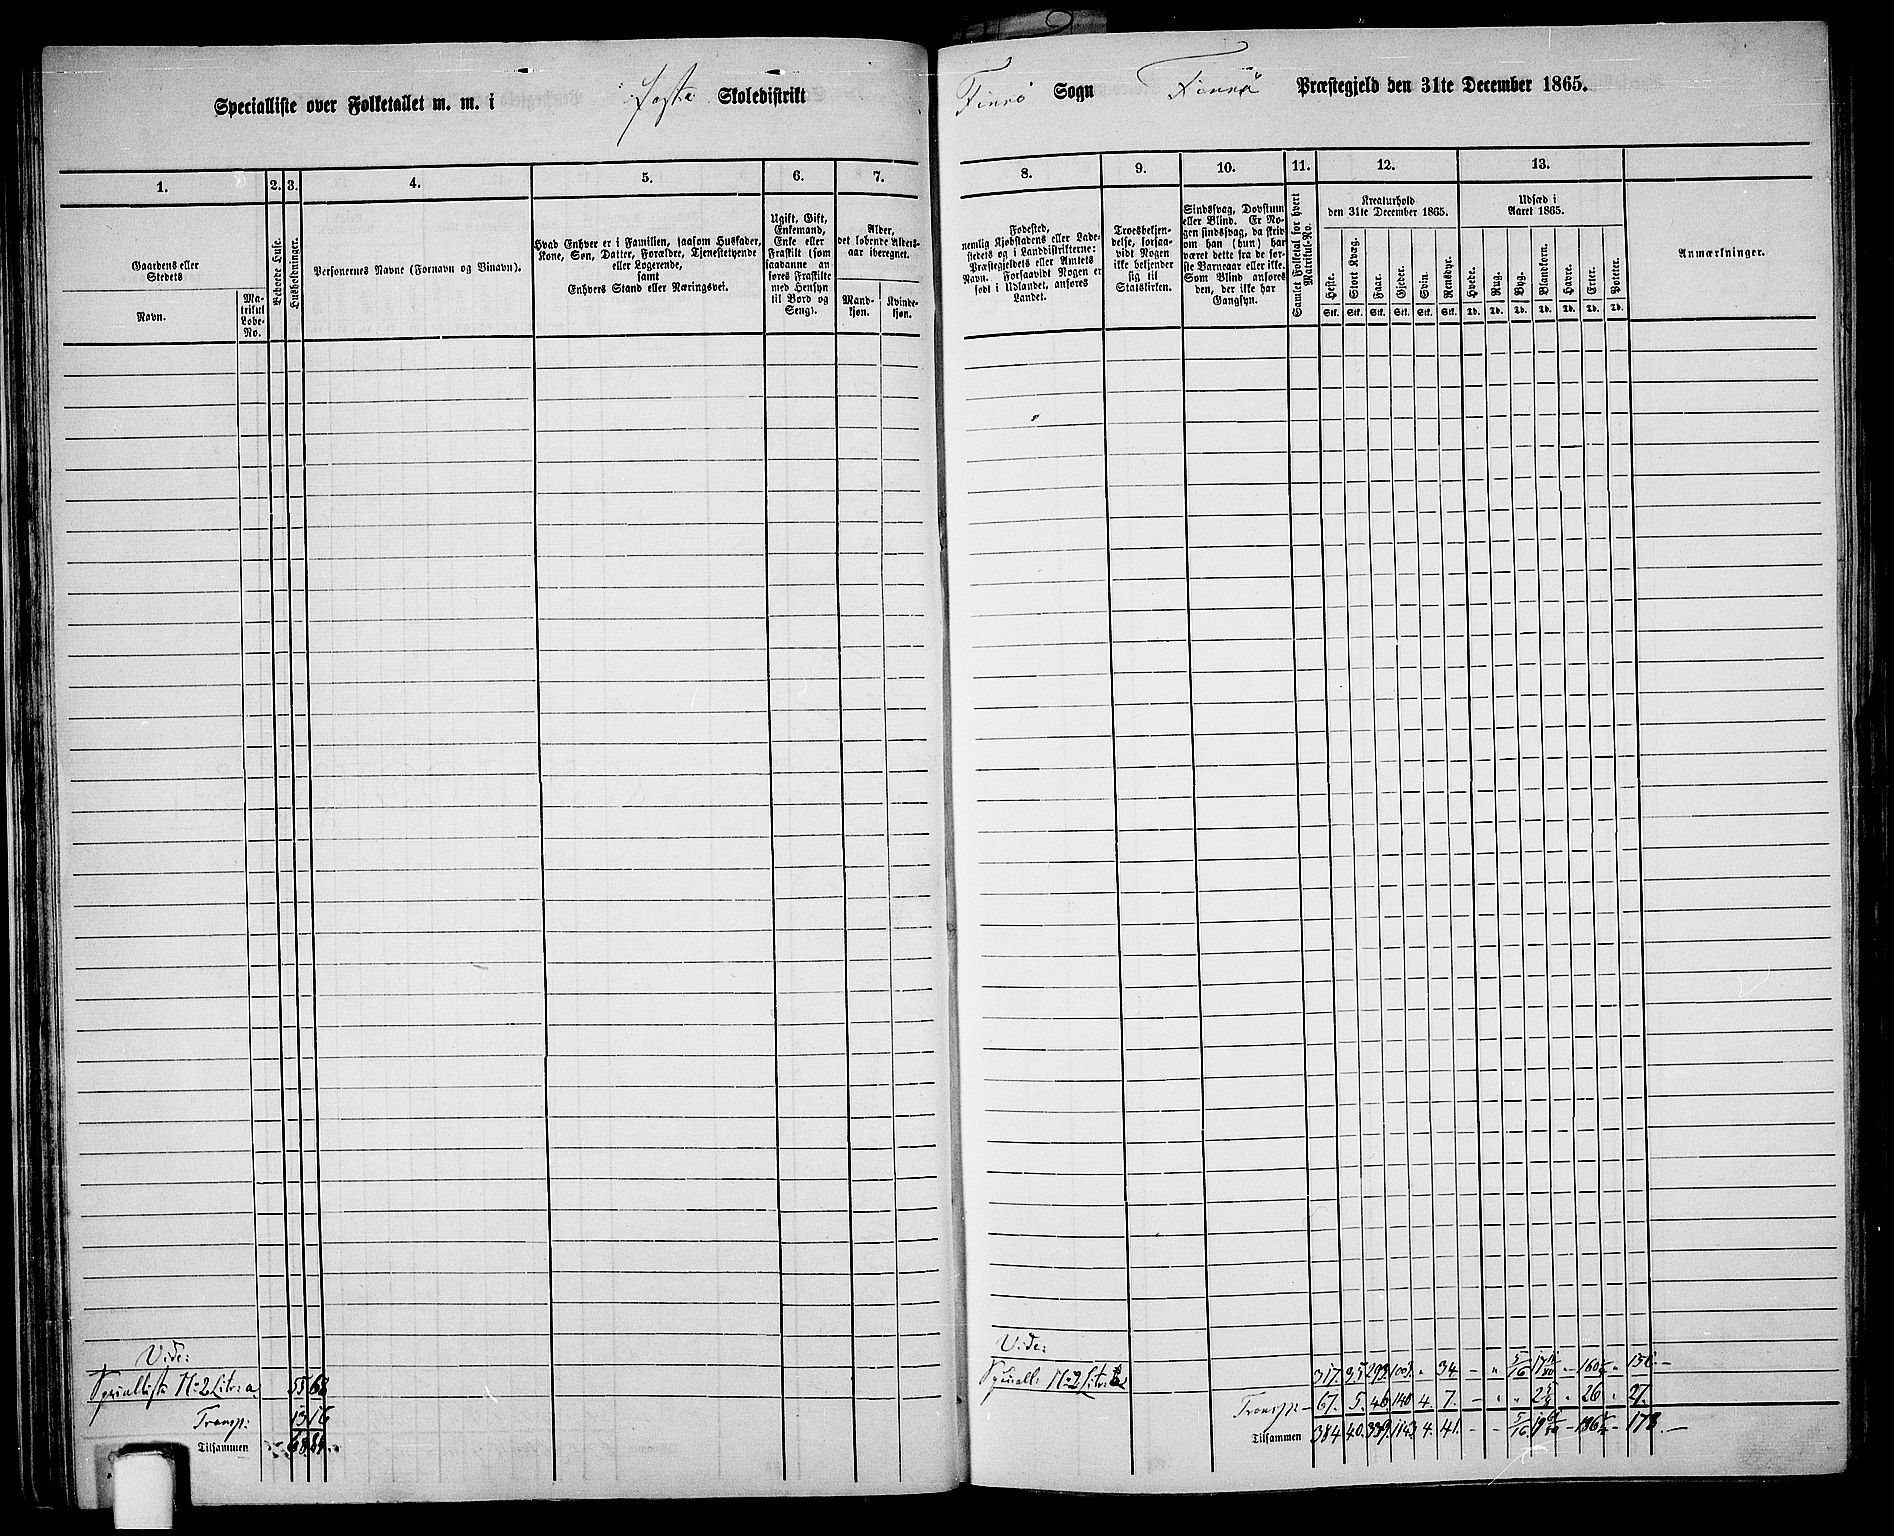 Specialliste over Folketallet m. m. i Foste Skoledistrikt
Finnø Sogn Finnø Præstegjeld den 31te December 1865.
1. 2. 3. 4. 5. 6. 7.
8. 9. 10. 11. 12. 13.
Gaardens eller Stedets
Navn.
Matrikul Løbe-No.
Beboede Huse.
Husholdninger.
Personernes Navne (Fornavn og Tilnavn).
Hvad Enhver er i Familien, saasom Husfader,
Kone, Søn, Datter, Forældre, Tjenestetyende
eller Logerende,
samt
Enhvers Stand eller Næringsvei.
Ugift, Gift,
Enkemand,
Enke eller
Fraskilt (som
saadanne anføres
Fraskilte
med Hensyn
til Bord og
Seng).
Alder,
det løbende Alders-
aar iberegnet.
Mandkjøn.
Kvindekjøn.
Fødested,
nemlig Kjøbstadens eller Lade-
stedets og i Landdistrikterne:
Præstegjeldets eller Amtets
Navn. Forsaavidt Nogen er
født i Udlandet, anføres
Landet.
Troesbekjendelse,
forsaavidt
Nogen
ikke bekjender
sig til
Statskirken.
Sindssvag, Døvstum
eller Blind. Er Nogen
sindssvag, da skriv
om han (hun) har
været dette fra de første
Barneaar eller ikke.
Som Blind anføres
den, der ikke har
Gangsyn.
Samlet Folketal for hvert
Matrikul-No.
Kreaturhold
den 31te December 1865.
Udsæd i
Aaret 1865.
Heste. Stort Kvæg. Faar. Gjeder. Svin. Rensdyr. Hvede. Rug. Byg. Blandkorn. Havre. Erter. Poteter.
Stk. Stk. Stk. Stk. Stk. Stk. Td. Td. Td. Td. Td. Td. Td.
Anmærkninger.
Vide:
Specialliste No 2 Litr: a 55 68
Transp: 13 16
Tilsammen 68 84
Vide:
Transp:
Tilsammen 384 40